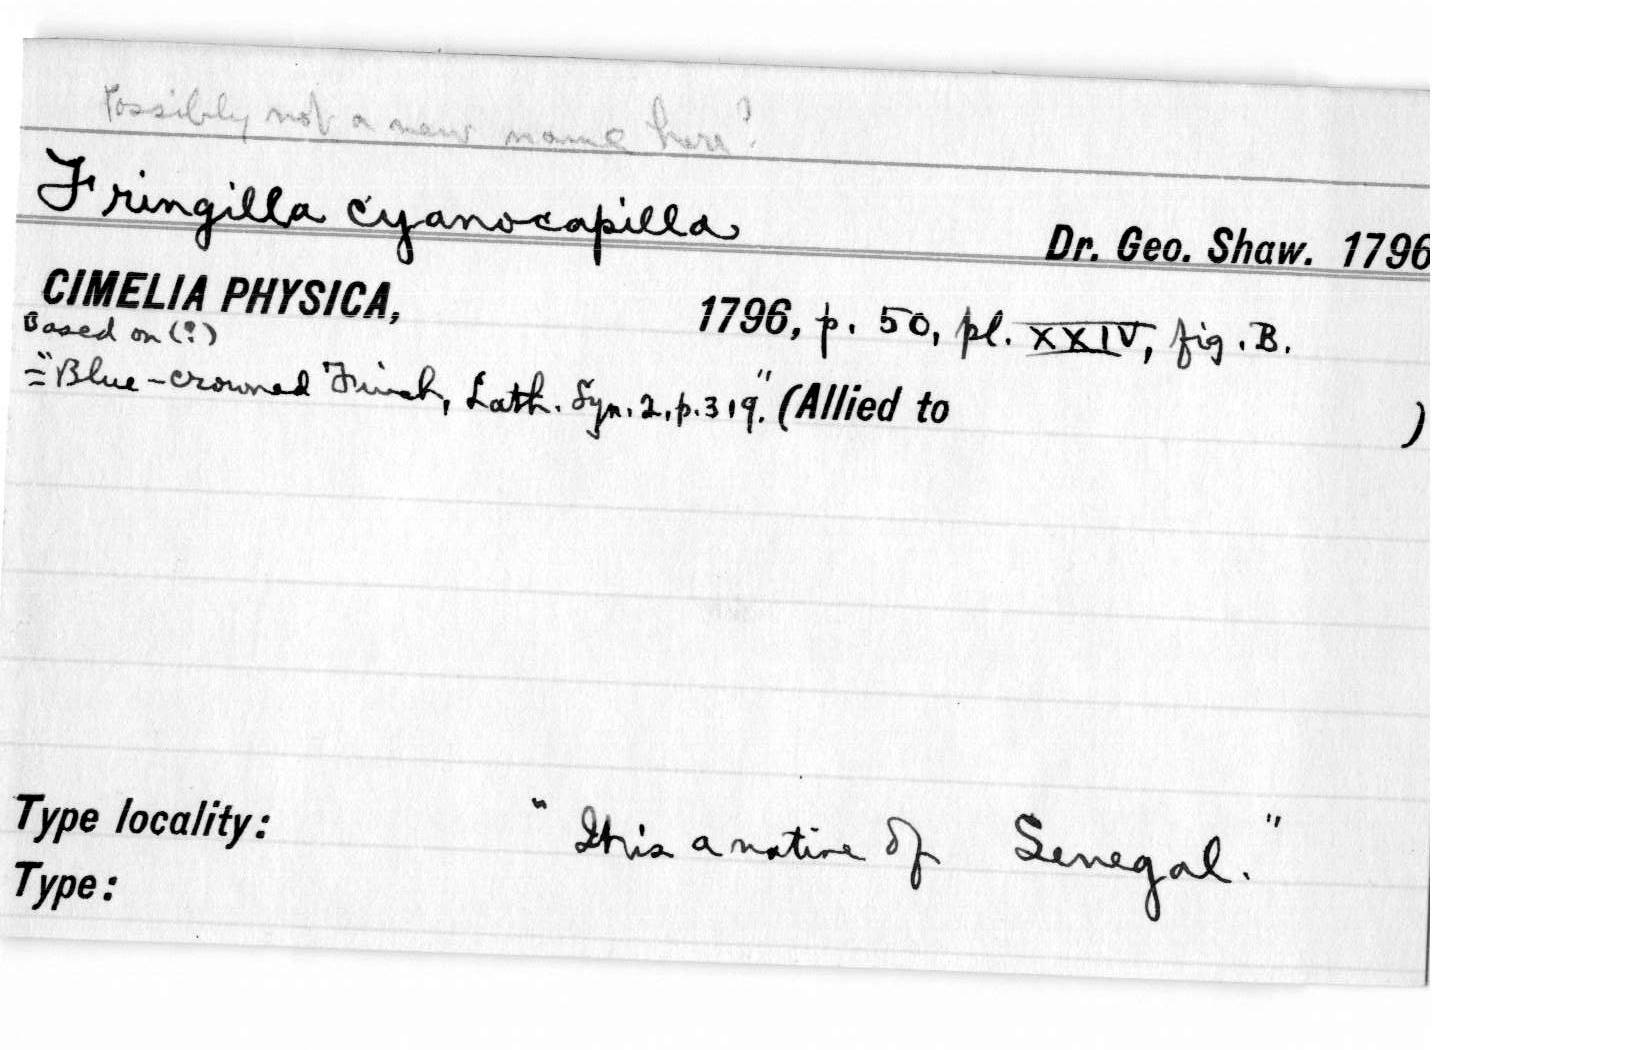 Possibly not a new name here?
Fringilla cyanocapilla
Dr. Geo. Shaw. 1796
CIMELIA PHYSICA, 1796, p. 50, pl. XXIV, fig. B.
Based on (?)
="Blue-crowned Finch, Lath. Syn. 2, p. 319." (Allied to )
Type locality: "It is a native of Senegal."
Type: